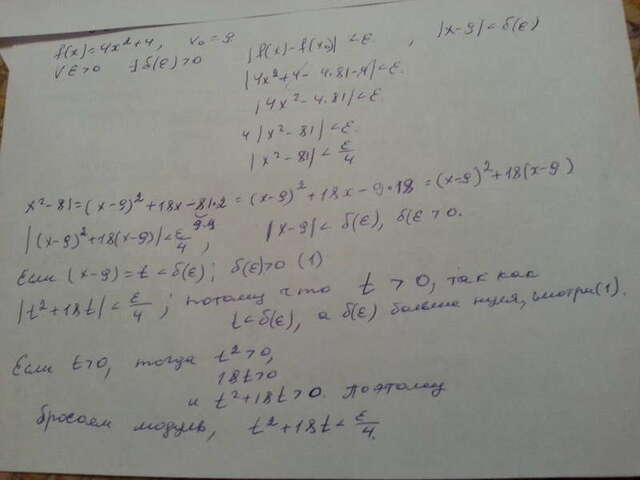 f(x)=4x²+4, x₀=9.
∀ε>0 ∃δ(ε)>0 |f(x)-f(x₀)|<ε, |x-9|<δ(ε)
|4x²+4-4·81-4|<ε.
|4x²-4·81|<ε.
4|x²-81|<ε.
|x²-81|<ε/4
x²-81=(x-9)²+18x-81·2=(x-9)²+18x-9·18=(x-9)²+18(x-9)
9·9
|(x-9)²+18(x-9)|<ε/4, |x-9|<δ(ε), δ(ε)>0.
Если (x-9)=t<δ(ε); δ(ε)>0 (1)
|t²+18t|<ε/4; потому что t>0, так как
t<δ(ε), а δ(ε) больше нуля, смотри (1).
Если t>0, тогда t²>0,
18t>0
и t²+18t>0. Поэтому
бросаем модуль, t²+18t<ε/4.